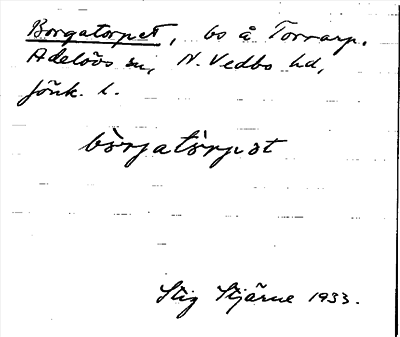 Borgatorpet, bs å Torrarp.
Adelövs sn, N. Vedbo hd,
Jönk. l.
bòrjatòrpət
Stig Stjärne 1933.